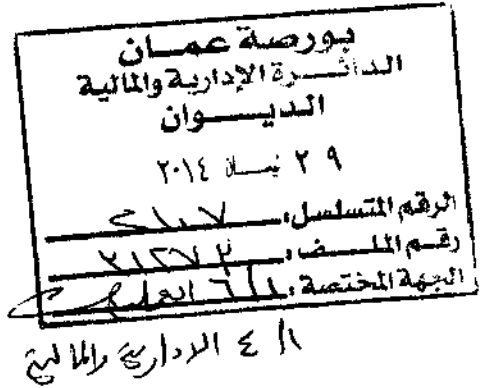 بورصة عمان
الدائرة الإدارية والمالية
الديوان
٢٩ نيسان ٢٠١٤
الرقم المتسلسل: ٢١٠٧
رقم الملف:
الجهة المختصة:
الادارية والمالية